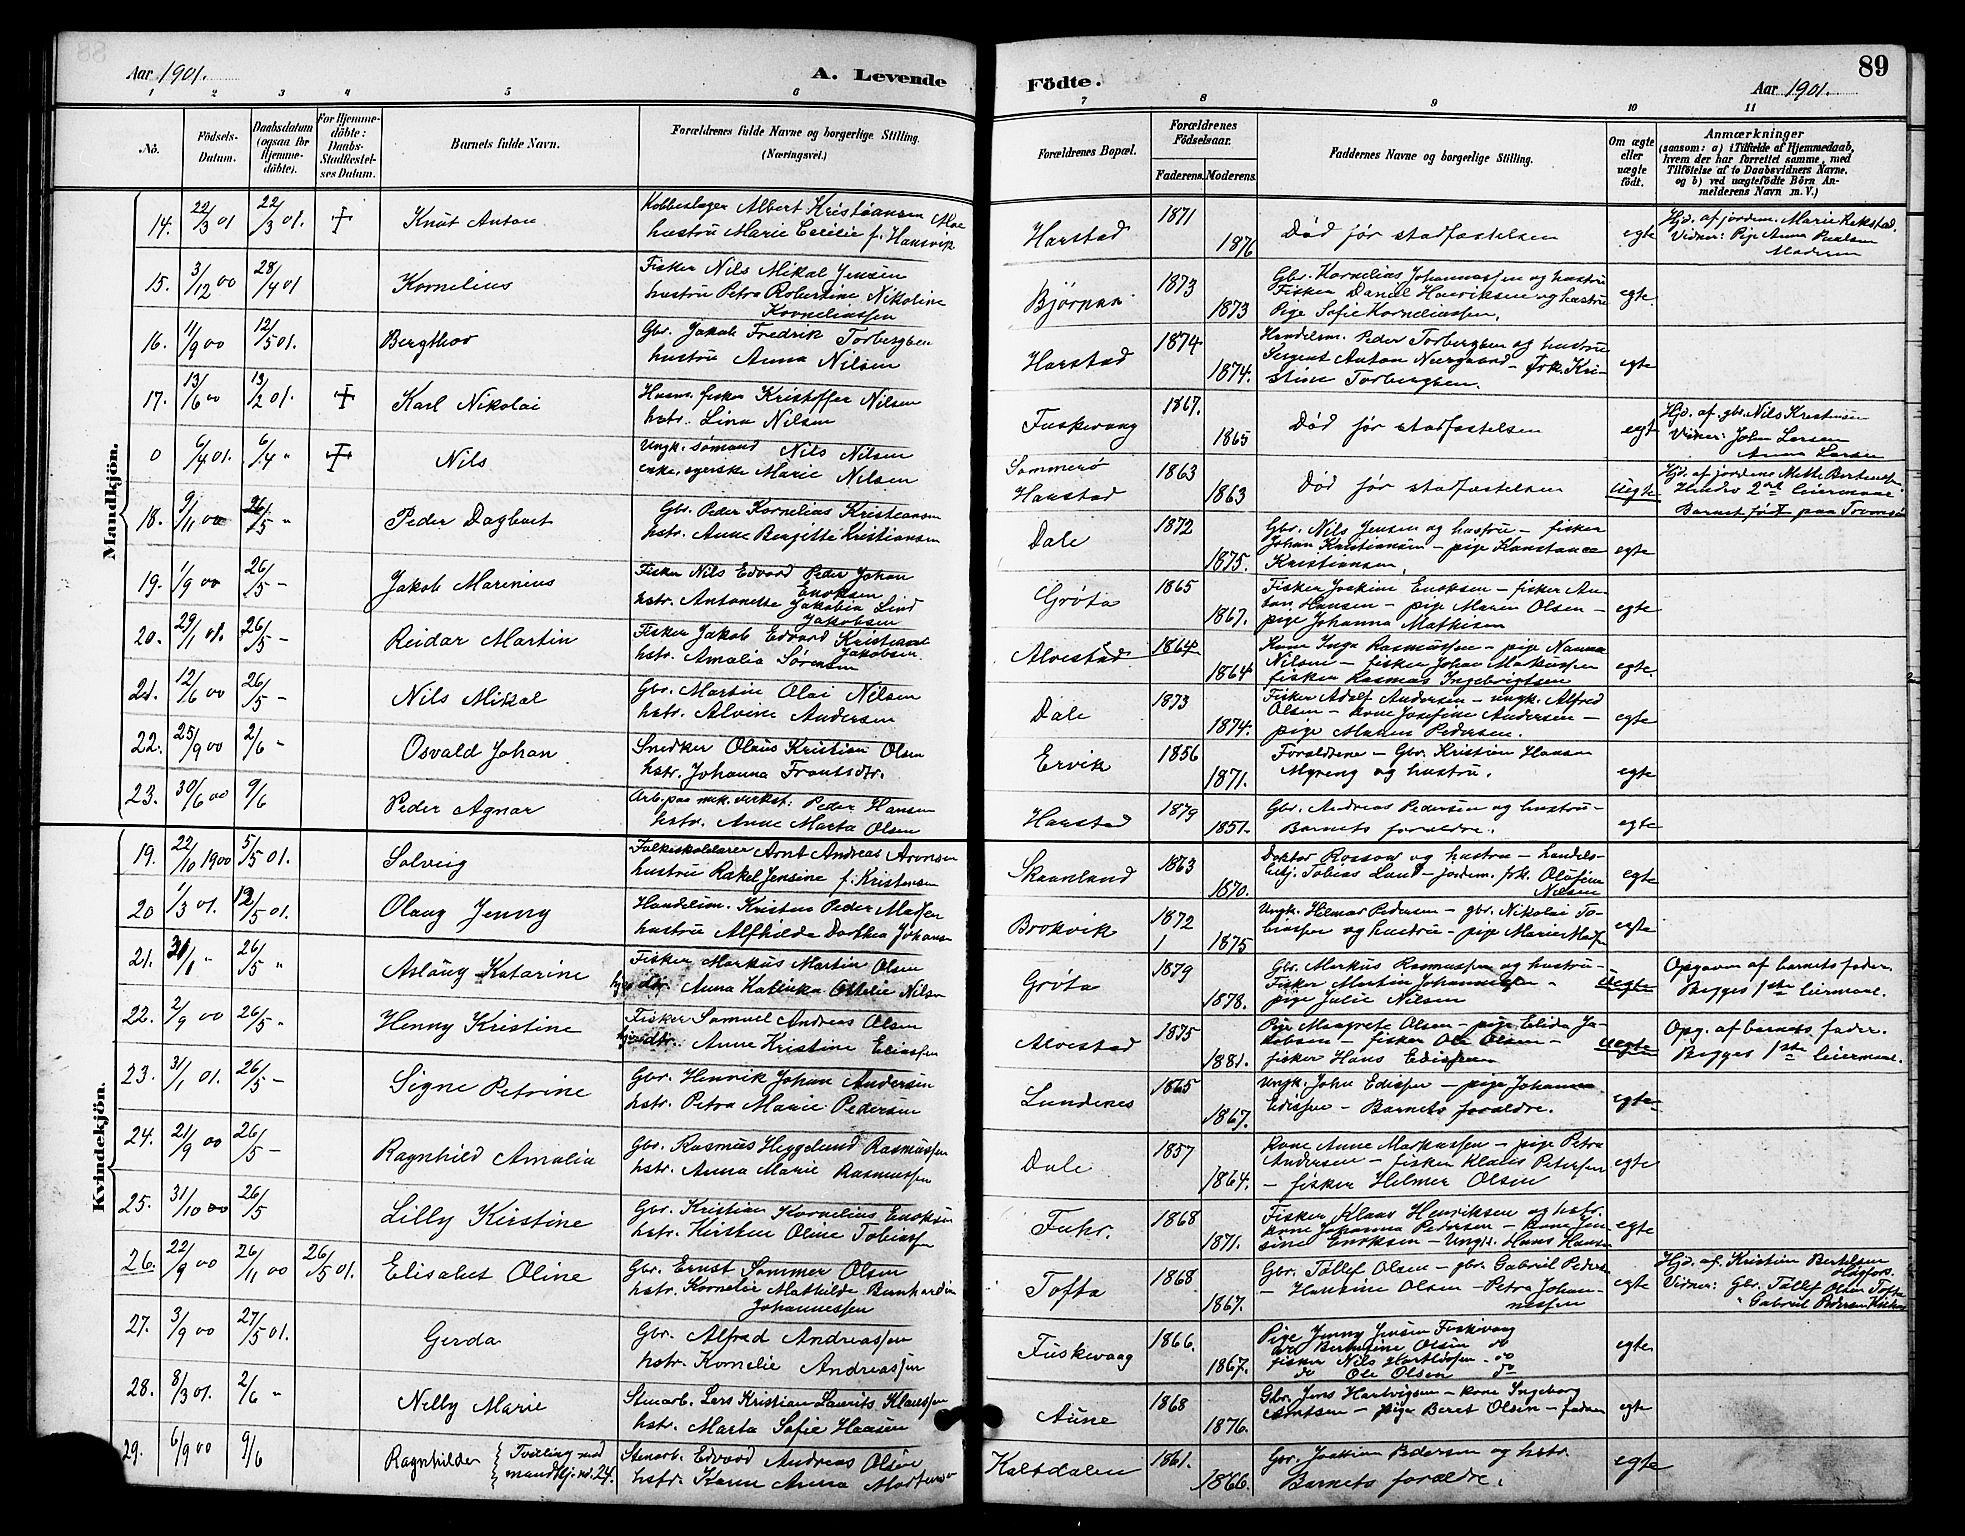 89
Aar 1901.
A. Levende
Födte.
Aar 1901.
1 2 3 4 5 6 7 8 9 10 11
No.
Födsels-
Datum.
Daabsdatum
(ogsaa for
Hjemme-
döbte).
For Hjemme-
döbte:
Daabs-
Stadfæstel-
ses Datum.
Barnets fulde Navn.
Forældrenes fulde Navne og borgerlige Stilling.
(Næringsvei.)
Forældrenes Bopæl.
Forældrenes
Födselsaar.
Faderens. Moderens.
Faddernes Navne og borgerlige Stilling.
Om ægte
eller
uægte
födt.
Anmærkninger
(saasom: a) i Tilfælde af Hjemmedaab,
hvem der har forrettet samme, med
Tilföielse af to Daabsvidners Navne.
og b) ved uægtefödte Börn An-
melderens Navn m. V.)
Mandkjön.
14. 22/3 01 22/3 01. Knut Anton
Kobbeslager Albert Kristiansen Moe
hustru Marie Cecilie f. Hansvik
Harstad 1871 1876
Död för stadfæstelsen
egte
Hjd. af jordem. Marie Rekstad.
Vidner: Pige Anna Paulsen
Moderen
15. 3/12 00 28/4 01 Kornelius
Fisker Nils Mikal Jensen
hustru Petra Robertine Nikoline
Korneliussen
1873 1873
Gbr. Kornelius Johannessen og hustru
Fisker Daniel Henriksen og hustru
Pige Sofie Korneliussen.
egte
16. 11/9 00 12/5 01. Bergthor
Gbr. Jakob Fredrik Torbergsen
hustru Anna Nilsen
Harstad 1874 1874.
Handelsm. Peder Torbergsen og hustru
Sergent Anton Neergaard – frk. Kri-
stine Torbergsen.
egte
17. 13/6 00 13/2 01. Karl Nikolai
Husm. fisker Kristoffer Nilsen
hstr. Lina Nilsen
Fuskevaag 1867. 1865
Död för stadfæstelsen
egte
Hjd. af gbr. Nils Kristensen
Vidner: John Larsen
Anna Larsen
0 6/4 01. 6/4 " Nils
Ungk. sömand Nils Nilsen
enke, syerske Marie Nilsen
Sommerö
Harstad 1863 1863
Död för stadfæstelsen
uegte
Hjd. af jordem. Mette Bertensen.
Hendes 2det leiermaal
Barnet födt paa Tromsö
18. 9/11 00 26/5 " Peder Dagbart
Gbr. Peder Kornelius Kristiansen
hstr. Anne Bergitte Kristiansen
Dale 1872 1875.
Gbr. Nils Jensen og hustru – fisker
Johan Kristiansen – pige Konstance
Kristiansen,
egte
19. 1/9 00 26/5 – Jakob Marinius
Fisker Nils Edvard Peder Johan
Enoksen
hstr. Antonette Jakobia Lind
Jakobsen
Gröta 1865 1867.
Fisker Joakim Enoksen – fisker An-
ton Hansen – pige Maren Olsen –
pige Johanna Mathisen
egte
20. 29/1 01. 26/5 – Reidar Martin
Fisker Jakob Edvard Kristian
Jakobsen.
hstr. Amalia Sörensen
Alvestad 1864 1864
Kone Inga Rasmussen – pige Nanna
Nilsen – fisker Johan Markussen
fisker Rasmus Ingebrigtsen
egte
21. 12/6 00 26/5 – Nils Mikal
Gbr. Martin Olai Nilsen
hstr. Alvine Andersen
Dale 1873 1874.
Fisker Adolf Andersen – ungk. Alfred
Olsen – kone Josefine Andersen –
pige Maren Pedersen.
egte
22. 25/9 00 2/6 " Osvald Johan
Snedker Olaus Kristian Olsen
hstr. Johanna Frantsdtr.
Ervik 1856 1871.
Forældrene – Gbr. Kristian Hansen
Myreng og hustru.
egte
23. 30/6 00 9/6 Peder Agnar
Arb. paa mek. verkst: Peder Hansen
hstr. Anne Marta Olsen
Harstad 1879 1851.
Gbr. Andreas Pedersen og hustru –
Barnets forældre.
egte
Kvindekjön.
19. 22/10 1900 5/5 01. Solveig
Folkeskolelærer Arnt Andreas Aronsen
hustru Rakel Jensine f. Kristensen
Skaanland 1863 1870.
Doktor Rossow og hustru – handels-
betj. Tobias Lund – jordem. frk. Olufine
Nilsen
egte
20 1/3 01. 12/5 01. Olaug Jenny
Handelsm. Kristen Peder Madsen
hustru Alfhilda Dorthea Johansen
Brokvik 1872 1875
Ungk. Hilmar Pedersen – gbr. Nikolai To-
biassen og hustru – pige Marie Madsen
egte
21. 31/1 " 26/5 " Aslaug Katarine
Fisker Markus Martin Olsen
Anna Katinka Ottelie Nilsen
Gröta 1879 1878.
Gbr. Markus Rasmussen og hustru –
Fisker Martin Johannessen –
pige Julie Nilsen
uegte
Opgaven af barnets fader.
Begges 1ste leiermaal.
22. 2/9 00 26/5 " Henny Kristine
Fisker Samuel Andreas Olsen
Anne Kristine Eliassen
Alvestad 1875 1881.
Pige Margrete Olsen – pige Elida Ja-
kobsen – fisker Ole Olsen –
fisker Hans Edissen
uegte
Opg. af barnets fader.
Begges 1ste leiermaal.
23. 31/1 01. 26/5 – Signe Petrine
Gbr. Henrik Johan Andersen
hstr. Petra Marie Pedersen
Lundenes 1865 1867.
Ungk. John Edissen – pige Johanna
Edissen – Barnets forældre.
egte
24. 21/9 00 26/5 – Ragnhild Amalia
Gbr. Rasmus Heggelund Rasmussen
hstr. Anna Marie Rasmussen
Dale 1857 1864.
Kone Anne Markussen – pige Petra
Andersen – fisker Klaus Petersen
– fisker Helmer Olsen
egte
25. 31/10 00 26/5 Lilly Kirstine
Gbr. Kristian Kornelius Enoksen
hstr. Kirsten Oline Tobiassen
Fuhr. 1868 1871.
Fisker Klaus Henriksen og hstr.
kone Johanna Pedersen – kone Jen-
sine Enoksen – Ungk. Hans Hansen
egte
26. 22/9 00 26/11 00 26/5 01. Elisabet Oline
Gbr. Ernst Sommer Olsen
hstr. Kornelie Mathilde Bernhardin
Johannessen
Tofta 1868 1867.
Gbr. Tollef Olsen – gbr. Gabriel Pedersen
– Hansine Olsen – Petra Johan-
nessen
egte
Hjd. af Kristian Bertelsen
Högfors.
Vidner: Gbr. Tollef Olsen Tofta
" Gabriel Pedersen
27. 3/9 00 27/5 01. Gerda
Gbr. Alfred Andreassen
hstr. Kornelie Andreassen
Fuskevaag 1866. 1867.
Pige Jenny Jensen Fuskevaag
do Berntine Olsen do
fisker Nils Martinsen – do
do Ole Olsen do
egte
28. 8/3 01. 2/6 " Nelly Marie
Stenarb. Lars Kristian Laurits Klaussen
hstr. Marta Sofie Hansen
Aune 1868 1876.
Gbr. Jens Hartvigsen – kone Ingeborg
Arntsen – pige Beret Olsen – fader
egte
29. 6/9 00 9/6 Ragnhilda { Tvilling med
mandkj. no. 24.
Stenarb. Edvard Andreas Olsen
hstr. Karen Anna Mortensen
Kaltdalen 1861. 1866.
Gbr. Joakim Pedersen og hstr.
Barnets forældre.
egte